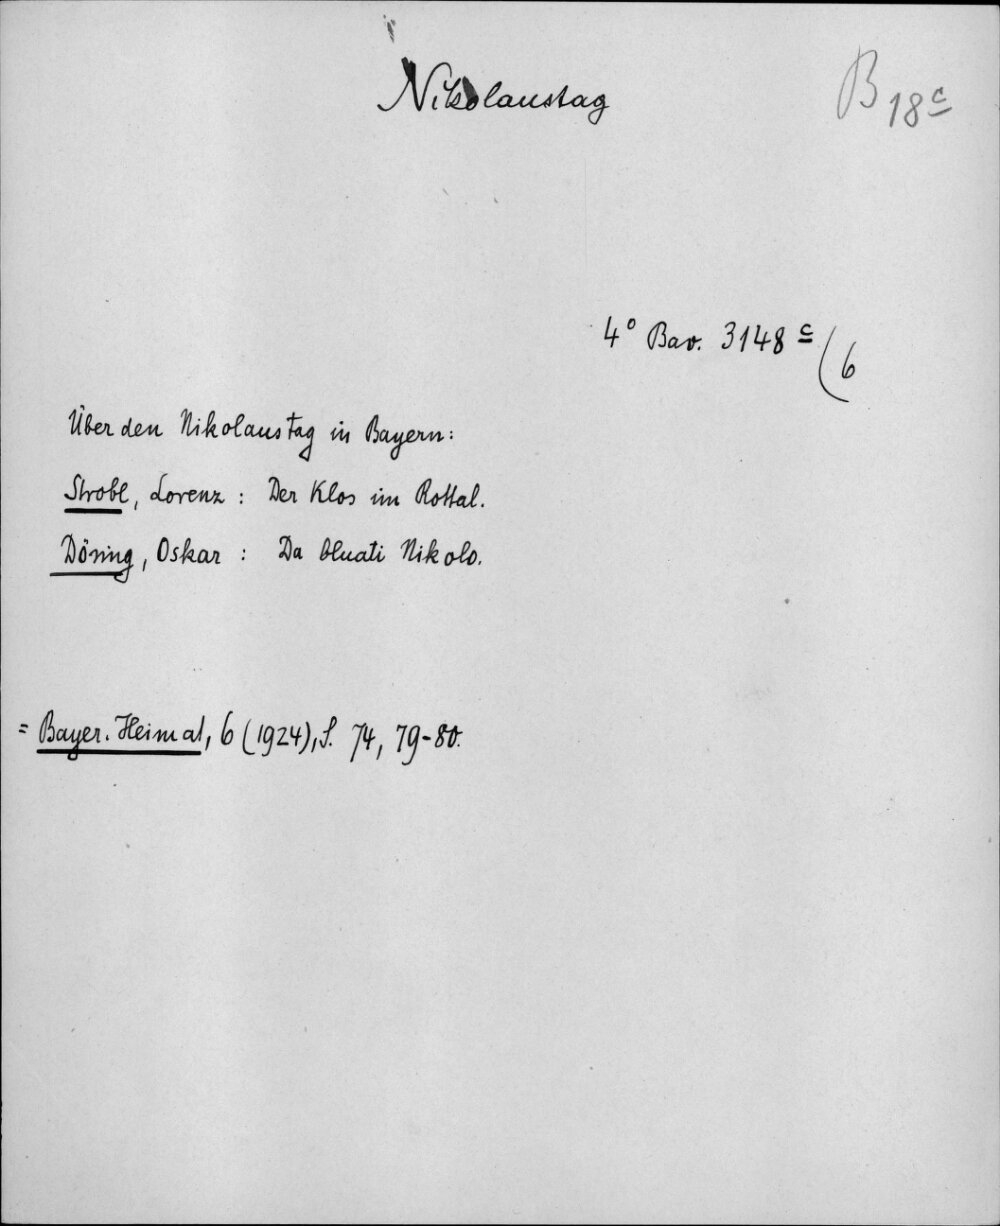 Nikolaustag
B 18c
4° Bav. 3148 c (6
Über den Nikolaustag in Bayern:
Strobl, Lorenz : Der Klos im Rottal.
Döring, Oskar : Da bluati Nikolo.
= Bayer. Heimat, 6 (1924), S. 74, 79-80.